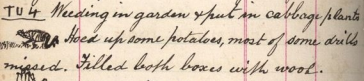 TU 4 Weeding in garden & put in cabbage plants
Hoed up some potatoes, most of some drills
missed. Filled both boxes with wool.